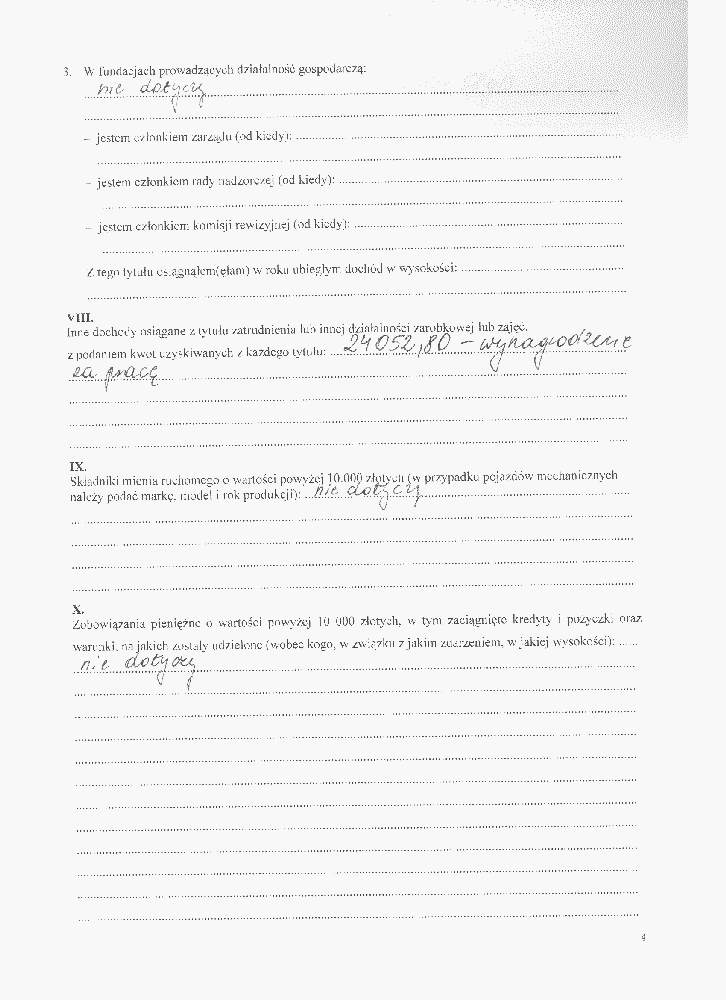 3. W fundacjach prowadzących działalność gospodarczą:
nie dotyczy
– jestem członkiem zarządu (od kiedy):
– jestem członkiem rady nadzorczej (od kiedy):
– jestem członkiem komisji rewizyjnej (od kiedy):
Z tego tytułu osiągnąłem(ęłam) w roku ubiegłym dochód w wysokości:
VIII.
Inne dochody osiągane z tytułu zatrudnienia lub innej działalności zarobkowej lub zajęć,
z podaniem kwot uzyskiwanych z każdego tytułu: 24052,80 – wynagrodzenie
za pracę
IX.
Składniki mienia ruchomego o wartości powyżej 10.000 złotych (w przypadku pojazdów mechanicznych
należy podać markę, model i rok produkcji): nie dotyczy
X.
Zobowiązania pieniężne o wartości powyżej 10 000 złotych, w tym zaciągnięte kredyty i pożyczki oraz
warunki, na jakich zostały udzielone (wobec kogo, w związku z jakim zdarzeniem, w jakiej wysokości):
nie dotyczy
4